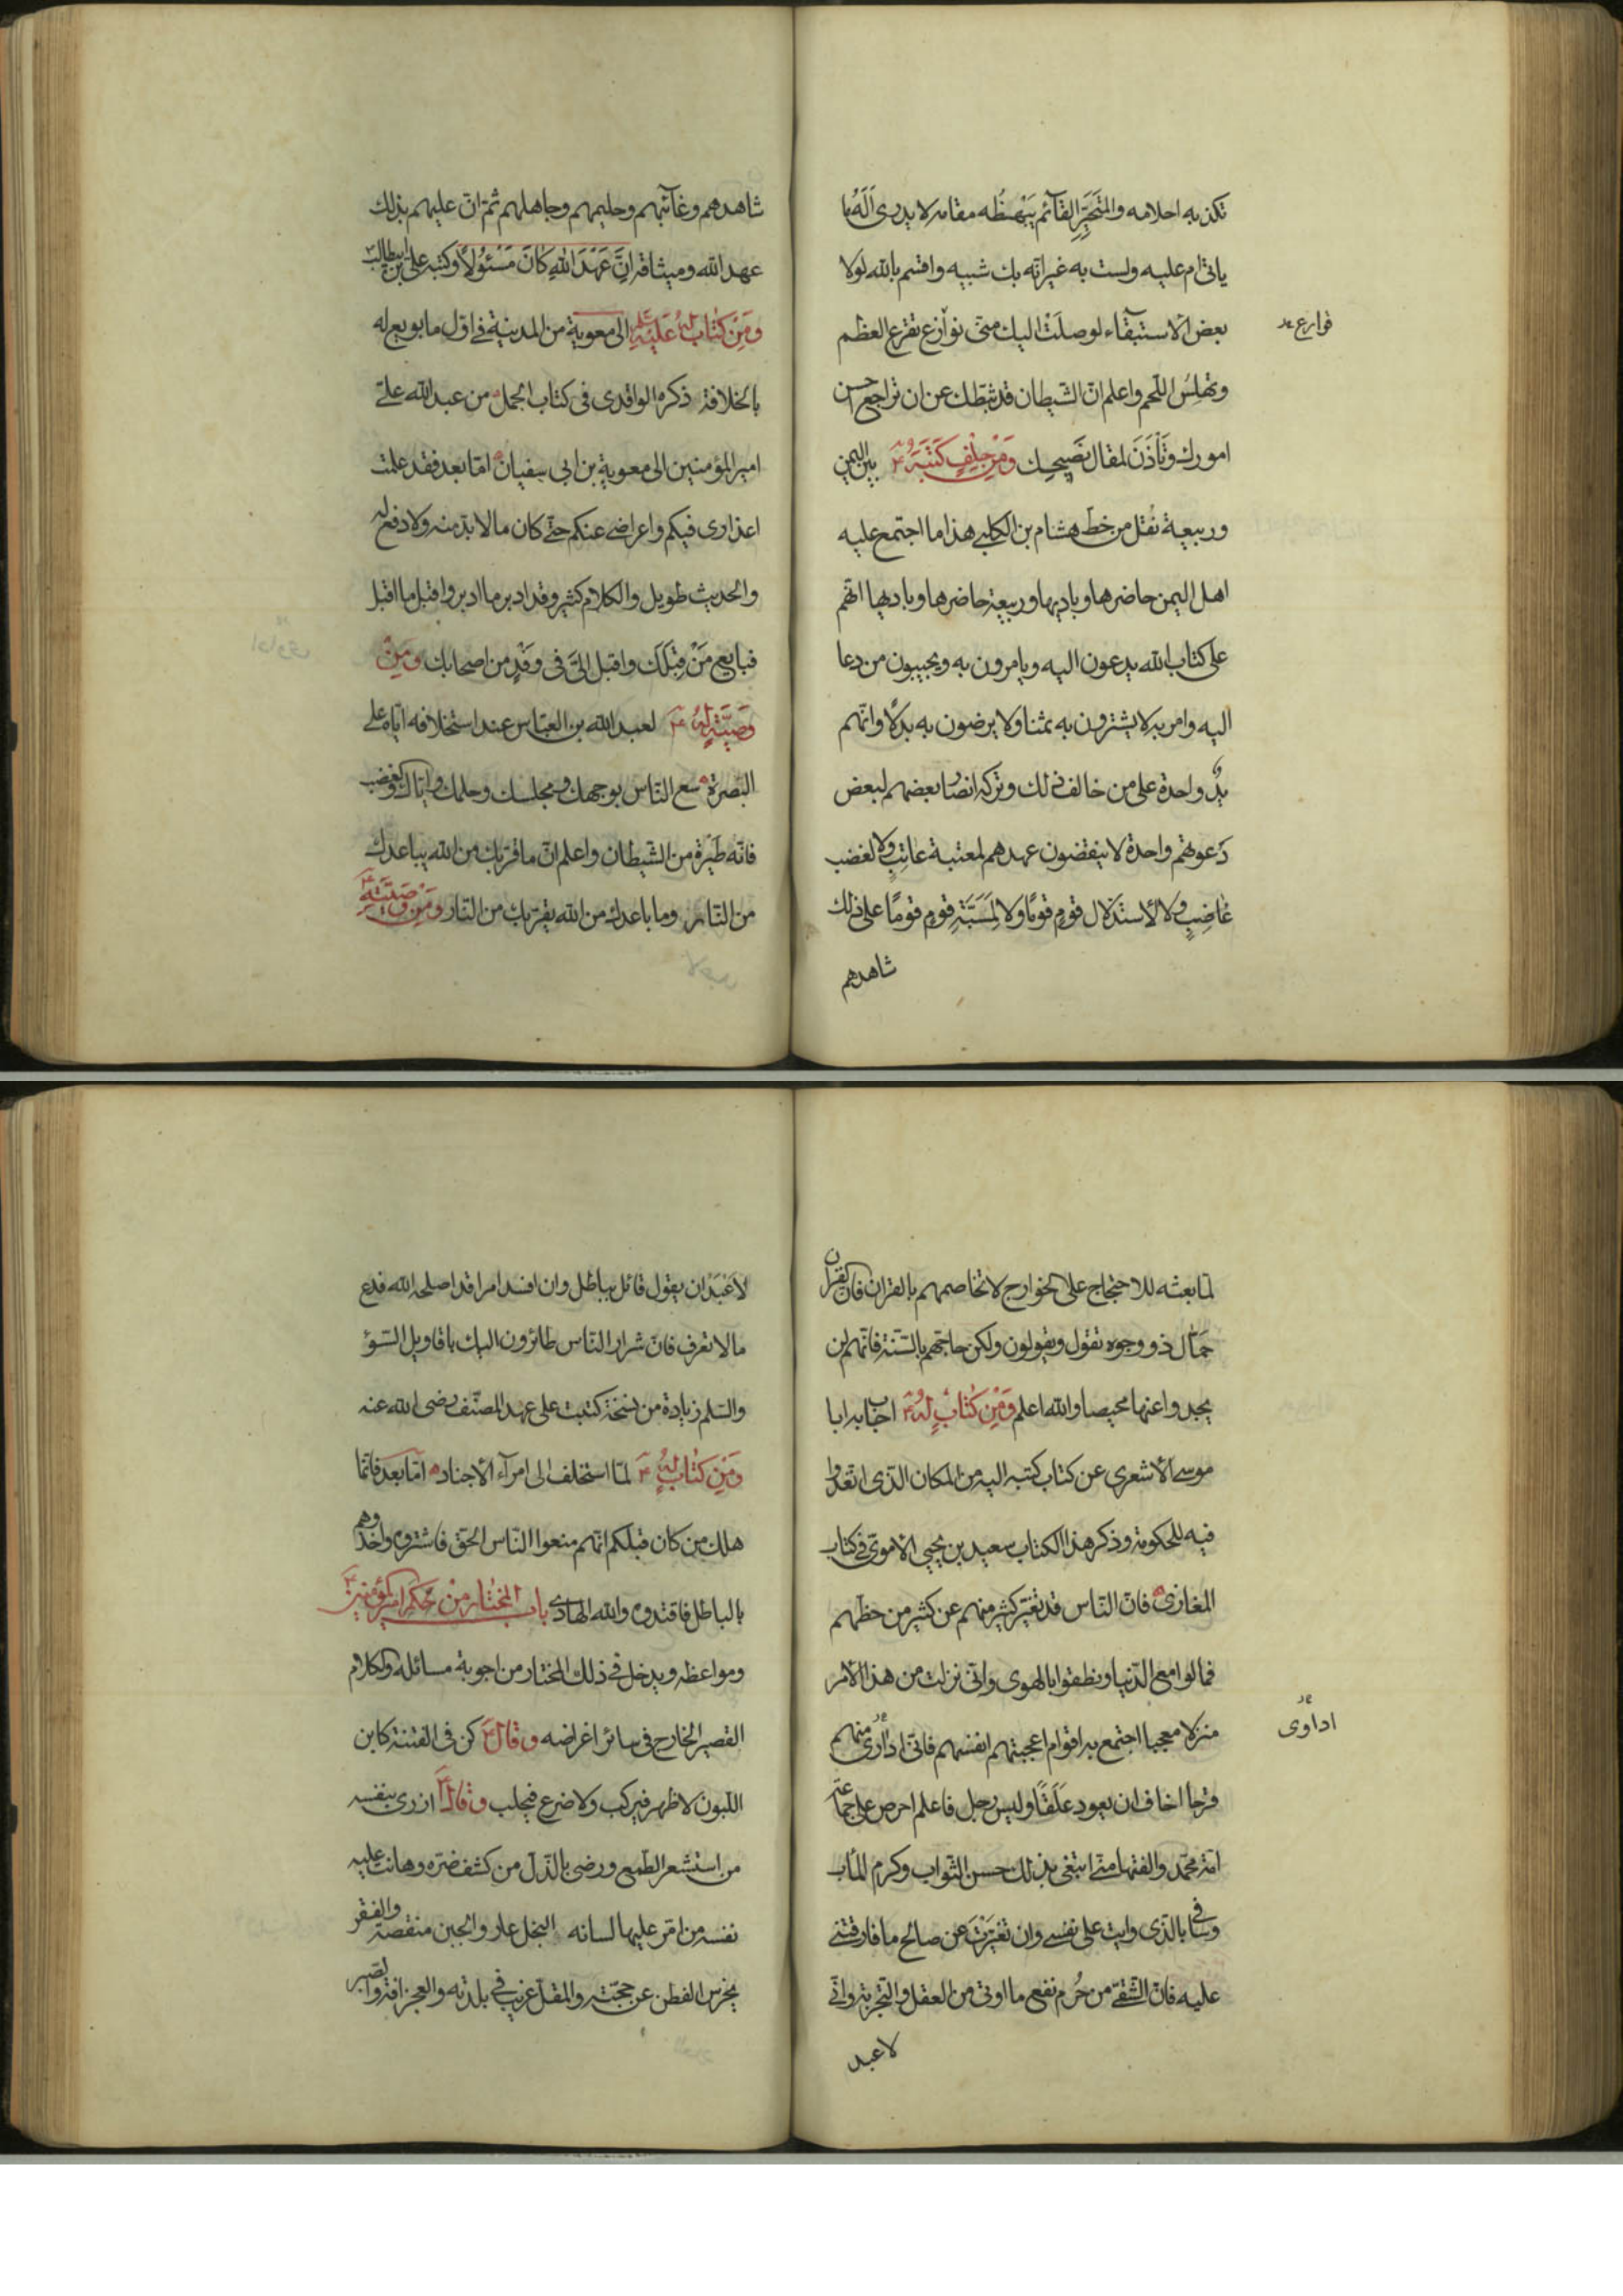 تكذبه احلامه والمتَحَيِّرِ القآئم يَبْهَظُه مقامه لا يدرى اَلَهُ ما
ياتى ام عليه ولست به غير انّه بك شبيه واقسم بالله لولا
بعض الاستبقآء لوصلَتْ اليك منّى نوازع تقرع العظم
قوارع
وتهلِسُ اللّحم واعلم انّ الشّيطان قد ثبّطك عن ان تراجع احسن
امورك وَتَأْذَنَ لمقال نَصيحِك وَمِنْ حِلْفٍ كَتَبَهُ ع بين اليمن
وربيعة نُقل من خطّ هشام بن الكلبى هذا ما اجتمع عليه
اهل اليمن حاضرها وباديها وربيعة حاضرها وباديها انّهم
على كتاب الله يدعون اليه ويامرون به ويجيبون من دعا
اليه وامر به لا يشترون به ثمنا ولا يرضون به بدلًا وانّهم
يدٌ واحدة على من خالف ذلك وتركه انصار بعضهم لبعض
دَعوتهم واحدة لا ينقضون عهدهم لمعتبة عاتِبٍ ولا لغضب
غاضِبٍ ولا لاستذلال قومٍ قومًا ولا لِمَسَبَّةِ قومٍ قومًا على ذلك
شاهدهم
شاهدهم وغآئبهم وحليمهم وجاهلهم ثمّ انّ عليهم بذلك
عهد الله وميثاقه اِنَّ عَهْدَ اللهِ كَانَ مَسْئُولًا وكتب على بن ابيطالب
وَمِنْ كِتابٍ لَهُ عَلَيْهِ السّلم الى معوية من المدينة فى اوّل ما بويع له
بالخلافة ذكره الواقدى فى كتاب الجمل من عبد الله علىّ
امير المؤمنين الى معوية بن ابى سفيان امّا بعد فقد علمت
اعذارى فيكم واعراضى عنكم حتّى كان ما لا بدّ منه ولا دفع له
والحديث طويل والكلام كثير وقد ادبر ما ادبر واقبل ما اقبل
فبايع مَنْ قِبَلَكَ واقبل الىَّ فى وَفْدٍ من اصحابك وَمِنْ
وَصِيَّةٍ لَهُ ع لعبد الله بن العبّاس عند استخلافه ايّاه على
البصرة سع النّاس بوجهك ومجلسك وحلمك وايّاك والغضب
فانّه طَيْرَة من الشّيطان واعلم انّ ما قرّبك من الله يباعدك
من النّار وما باعدك من الله يقرّبك من النّار وَمِنْ وَصِيَّتِهِ ع
لمّا بعثه للاحتجاج على الخوارج لا تخاصمهم بالقران فانّ القران
حَمّال ذو وجوه تقول ويقولون ولكن حاجّهم بالسّنّة فانّهم لن
يجدوا عنها محيصا والله اعلم وَمِنْ كِتابٍ لَهُ ع اجاب به ابا
موسى الاشعرى عن كتاب كتبه اليه من المكان الّذى اتّعدوا
فيه للحكومة وذكر هذا الكتاب سعيد بن يحيى الاموىّ فى كتاب
المغازى فانّ النّاس قد تغيّر كثير منهم عن كثير من حظّهم
فمالوا مع الدّنيا ونطقوا بالهوى وانّى نزلت من هذا الامر
منزلا معجبا اجتمع به اقوام اعجبتهم انفسهم فانّى ادارى منهم
اداوى
قرحا اخاف ان يعود عَلَقًا وليس رجل فاعلم احرص على جماعة
امّة محمّد والفتها منّى ابتغى بذلك حسن الثّواب وكرم المآب
وسافى بالّذى وايت على نفسى وان تغيّرْتَ عن صالح ما فارقتنى
عليه فانّ الشّقىّ من حُرم نفع ما اوتى من العقل والتّجربة وانّى
لاعبد
لاَعْبَدُ ان يقول قائل بباطل وان افسد امرا قد اصلحه الله فدع
ما لا تعرف فانّ شرار النّاس طائرون اليك باقاويل السّوؤ
والسّلم زيادة من نسخة كتبت على عهد المصنّف رضى الله عنه
وَمِنْ كِتابٍ لَهُ ع لمّا استخلف الى امرآء الاجناد امّا بعد فانّما
هلك من كان قبلكم انّهم منعوا النّاس الحقّ فاشتروه واخذوهم
بالباطل فاقتدوه والله الهادى باب المُختارِ مِنْ حِكَمِ اميرالمؤمنين ع
ومواعظه ويدخل فى ذلك المختار من اجوبة مسائله والكلام
القصير الخارج فى سائر اغراضه وقالَ ع كن فى الفتنة كابن
اللّبون لا ظهر فيركب ولا ضرع فيحلب وقال ع ازرى بنفسه
من استشعر الطّمع ورضى بالذّلّ من كشف ضرّه وهانت عليه
نفسه من امّر عليها لسانه البخل عار والجبن منقصة والفقر
يخرس الفطن عن حجّته والمقلّ غريب فى بلدته والعجز افة والصّبر